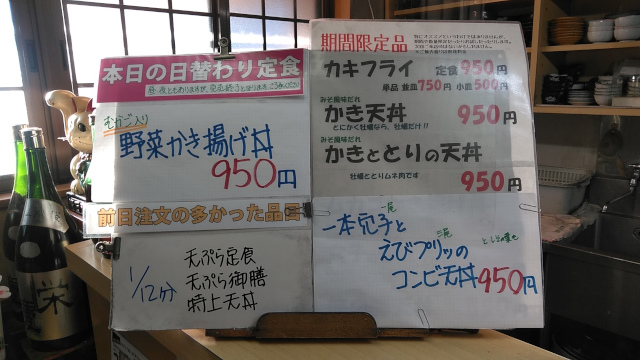 本日の日替わり定食
むかご入り
野菜かき揚げ丼
950円
前日注文の多かった品目
1/12分
天ぷら定食
天ぷら御膳
特上天丼
期間限定品
カキフライ 定食950円
単品 並皿750円 小皿500円
みそ風味だれ
かき天丼 950円
とにかく牡蠣なら、牡蠣だけ!!
みそ風味だれ
かきととりの天丼
牡蠣ととりムネ肉です
950円
一本穴子と
一尾
えびプリッの
三尾
コンビ天丼950円
栄